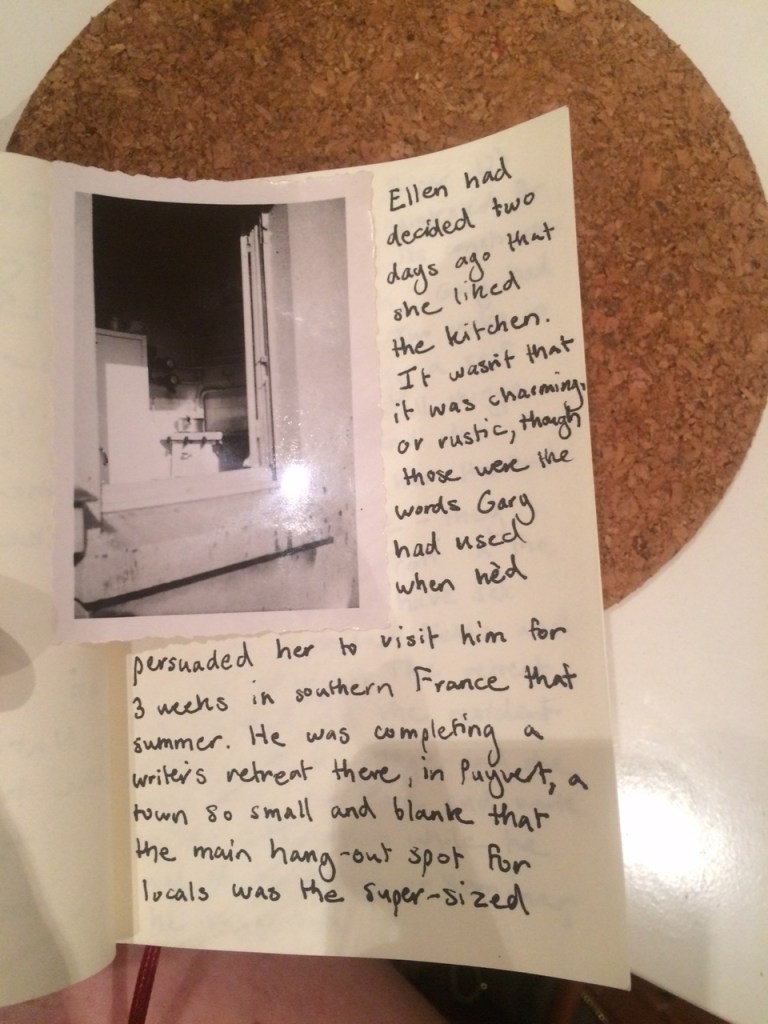 Ellen had
decided two
days ago that
she liked
the kitchen.
It wasn't that
it was charming,
or rustic, though
those were the
words Gary
had used
when he'd
persuaded her to visit him for
3 weeks in southern France that
summer. He was completing a
writer's retreat there, in Puyvert, a
town so small and blank that
the main hang-out spot for
locals was the super-sized